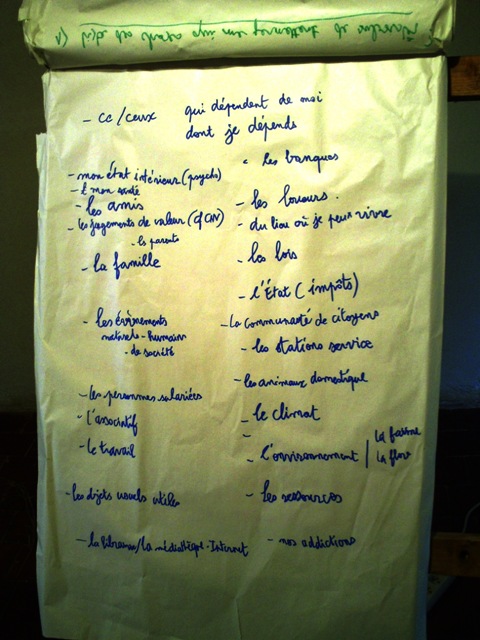 - cc/ceux qui dépendent de moi
dont je dépends
- mon état intérieur (psycho)
- + mon santé
- les amis
- les jugements de valeur (cf CNV)
- les parents
- la famille
- les évènements
naturels - humain
- de société
- les personnes salariées
- l'associatif
- le travail
- les objets usuels utiles
- la librairie/la médiathèque - Internet
- les banques
- les loueurs.
- du lieu où je peux vivre
- les lois
- l'État (impôts)
- la communauté de citoyens
- les stations service
- les animaux domestique
- le climat
-
- l'environnement | la faune
la flore
- les ressources
- nos addictions